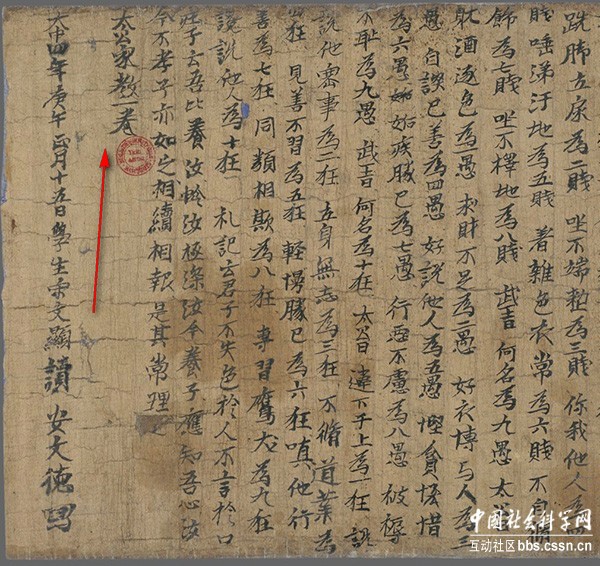 跣脚立尿為二賤 坐不端為三賤 你我他人為四
賤 唾涕汙地為五賤 著雜色衣常為六賤 不自修
飾為七賤 坐不擇地為八賤 武吉 何名為九愚 太公
躭酒逐色為一愚 求財不足為二愚 好衣博与人為三
愚 自誤己善為四愚 好說他人為五愚 慳貪恡惜
為六愚 妬疾勝己為七愚 行不慮為八愚 被辱
不恥為九愚 武吉 何名為十狂 太公曰 違下于上為一狂 説
說他密事為二狂 立身無志為三狂 不脩道業為
四狂 見善不習為五狂 軽慢勝己為六狂 嗔他行
善為七狂 同類相欺為八狂 專習鷹犬為九狂
說說他人為十狂 札記云君子不失色於人不言於口
莊子云吾比養汝汝極深汝今養子應知吾心汝
今不孝子亦如之相續相報是其常理
太公家教一卷
大中四年庚午正月十五日學生宋文顯讀 安文德寫
中国社会科学网
互动社区bbs.cssn.cn